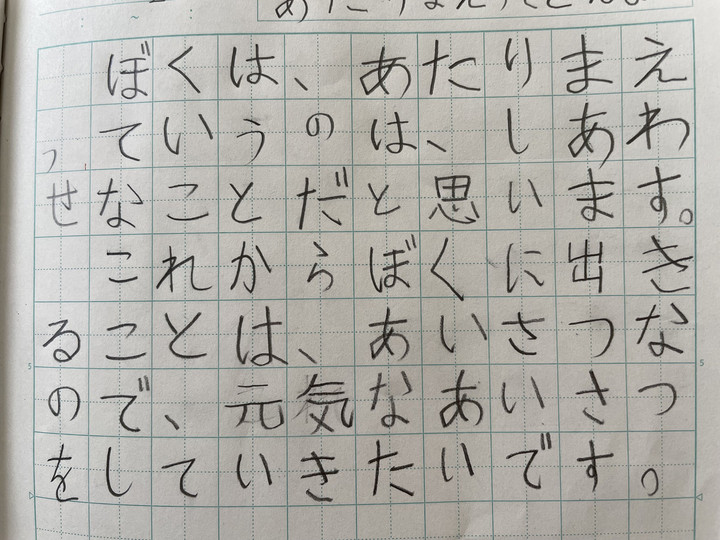 ぼくは、あたりまえ
っていうのは、しあわ
せなことだと思います。
これからぼくに出き
ることは、あいさつな
ので、元気なあいさつ
をしていきたいです。